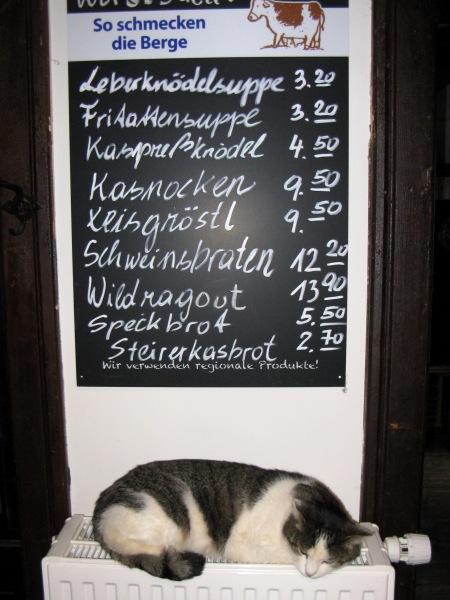 So schmecken
die Berge
Leberknödelsuppe 3.20
Fritattensuppe 3.20
Kaspreßknödel 4.50
Kasnocken 9.50
Xeisgröstl 9.50
Schweinsbraten 12 20
Wildragout 13 90
Speckbrot 5.50
Steirerkasbrot 2.70
Wir verwenden regionale Produkte!